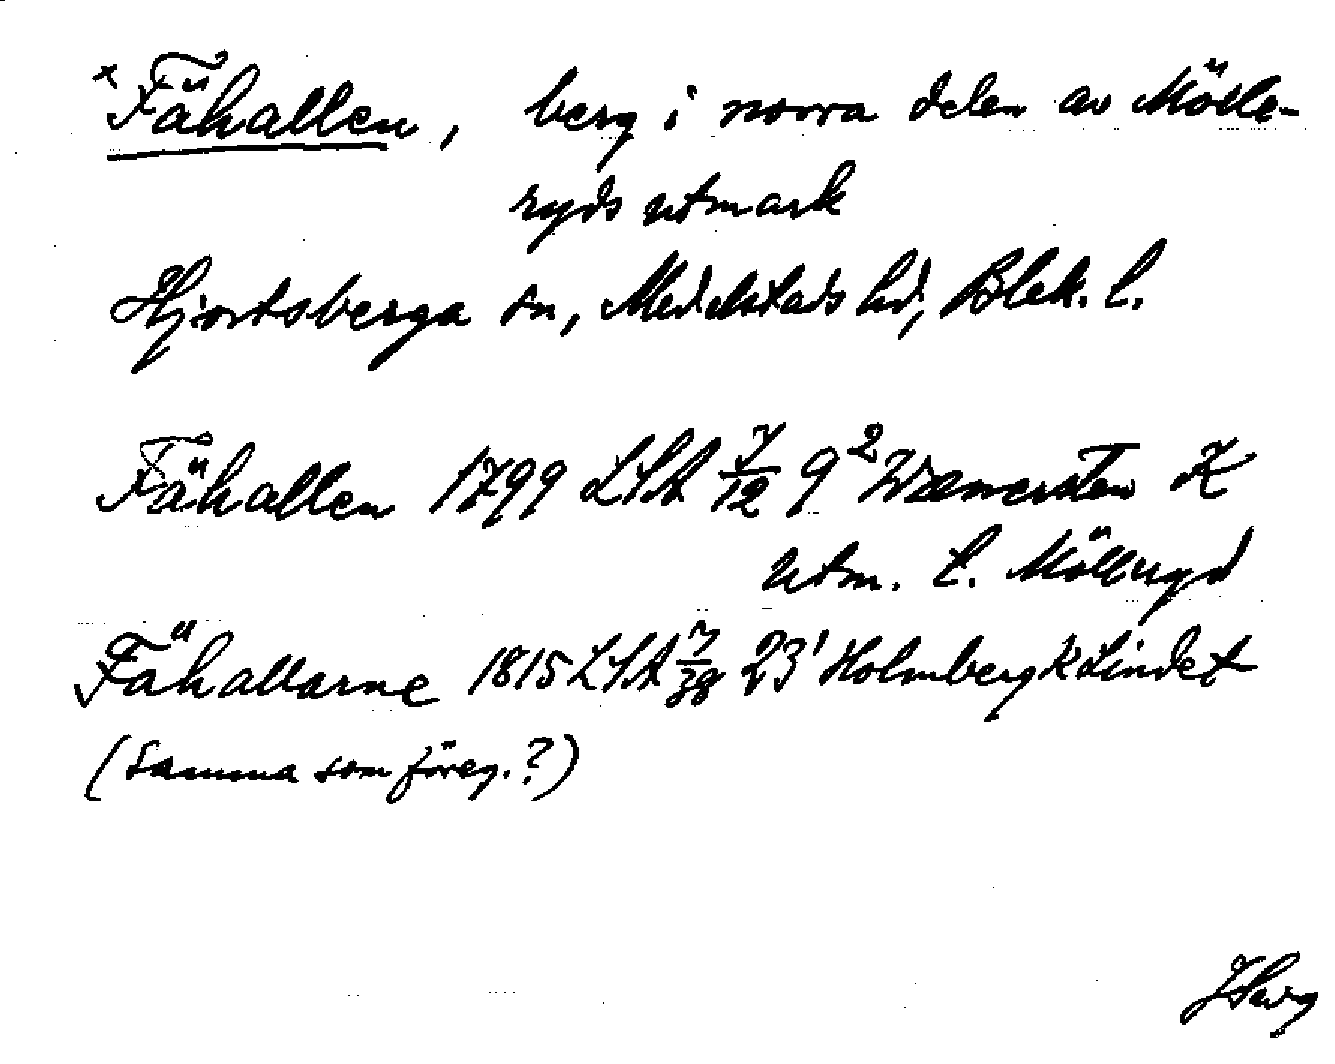 × Fähallen, berg i norra delen av Mölle-
ryds utmark
Hjortsberga sn, Medelstads hd, Blek. l.
Fähallen 1799 LSA 7/12 9² Wæmersten K
utm. t. Mölleryd
Fähallarne 1815 LSA 7/38 23¹ Holmberg K Lindet
(Samma som föreg.?)